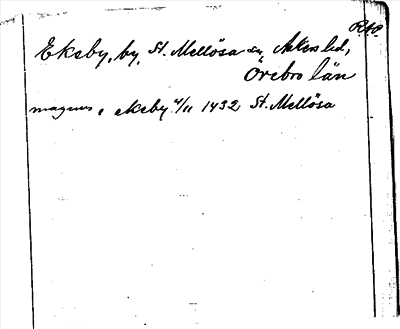 RAP.
Eksby, by, St. Mellösa sn, Askers hd,
Örebro län
magnus, i eksby 4/11 1432 St. Mellösa